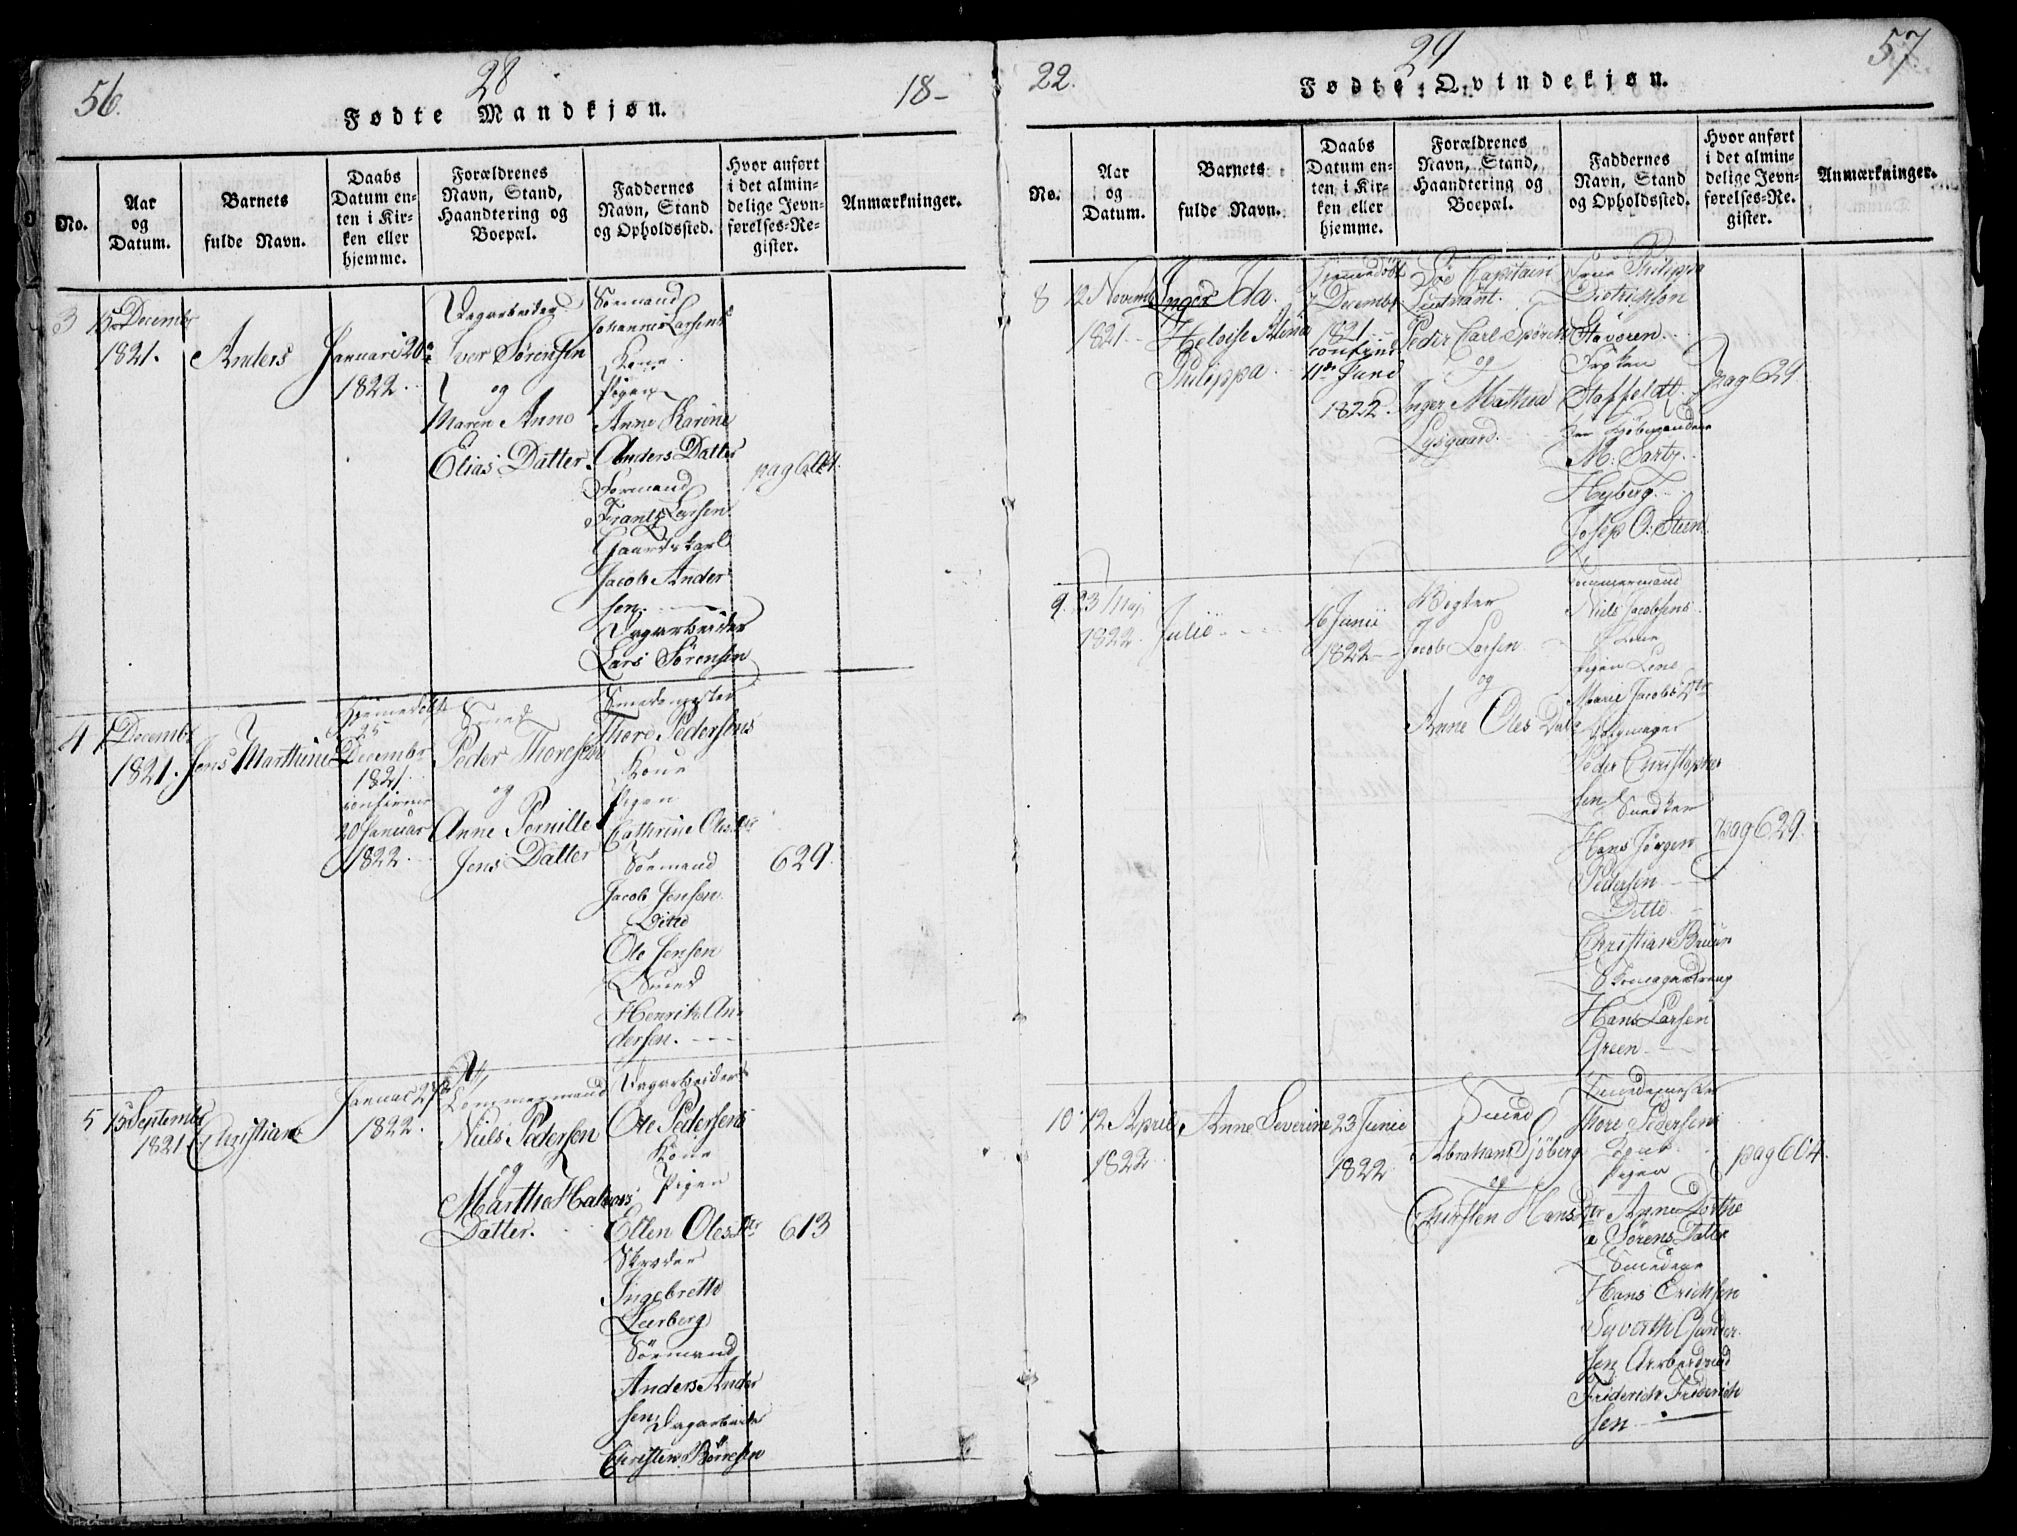 56.
28
18-
Fødte Mandkjøn.
No.
Aar
og
Datum.
Barnets
fulde Navn.
Daabs
Datum en-
ten i Kir-
ken eller
hjemme.
Forældrenes
Navn, Stand,
Haandtering og
Boepæl.
Faddernes
Navn, Stand
og Opholdssted.
Hvor anført
i det almin-
delige Jevn-
førelses-Re-
gister.
Anmærkninger.
3
15 Decembr
1821.
Anders
Januari 20
1822.
Dagarbeider
Iver Sørensen
og
Maren Anna
Elias Datter.
Sørmand
Johannes Larsens
Kone
Pigen
Anne Karine
Anders Datter
Sørmand
Frantz Larsen
Gaardskarl
Jacob Ander
sen.
Dagarbeider
Lars Sørensen
4
1 Decembr
1821.
Jens Marthinus
Hjemedøbt
25
Decembr
1821.
confirmer
20 Januar
1822.
Smed
Peder Thoresen
og
Anne Pernille
Jens Datter
Smedemester
Thore Pedersens
Kone
Pigen
Cathrine Olesdtr
Sørmand
Jacob Jensen
Ditto
Ole Jensen
Smed
Henrik An-
dersen.
629.
5
15 Septembr
1821
Christian
Januar 27
1822.
Tømmermand
Niels Pedersen
og
Marthe Halvors
Datter.
Dagarbeider
Ole Pedersens
Kone
Pigen
Ellen Olesdtr
Skræder
Ingebrette
Leerberg
Sørmand
Anders Ander
sen, Dagarbeider
Christen Børresen
613
22.
29
57.
Fødte Qvindekjøn.
No.
Aar
og
Datum.
Barnets
fulde Navn.
Daabs
Datum en-
ten i Kir-
ken eller
hjemme.
Forældrenes
Navn, Stand,
Haandtering og
Boepæl.
Faddernes
Navn, Stand
og Opholdssted.
Hvor anført
i det almin-
delige Jevn-
førelses-Re-
gister.
Anmærkninger.
8
12 Novemb
1821.
Inger Ida
Heloise Alenia
Philippa.
Hjemmedøbt
7 Decembr
1821.
confirm
11 Juni
1822.
Søe Capitain
Lieutnant.
Peder Carl Spørck
og
Inger Mathea
Lysgaard.
Frue Philippa
Dietrichson
Stavøren.
Frøken
Staffeldt
Kjøbmændene
M. Sartz.
Heyberg.
Josep O. Steen
pag 629
9.
23 Maj
1822.
Julie
16 Junii
1822
Vægter
Jacob Larsen
og
Anne Oles Datr
Tømmermand
Niels Jacobsens
Kone
Pigen Lene
Marie Jacobsdtr
Peder Christopher
sen
Snedker
Hans Jørgen
Pedersen
Ditto
Christian Bruun
Skomagerdreng
Hans Larsen
Green
pag 629.
10
12 April
1822.
Anne Severine
23 Junii
1822
Smed
Abraham Sjøberg
og
Chirsten Hansdtr
Smedemester
Thore Pedersens
Kone
Pigen
Anne Dorthe
a Sørens Datter
Smedene
Hans Erichsen
Syverth Gunder-
sen, Arbeidsmd
Friderich Friderich
sen
pag 604.